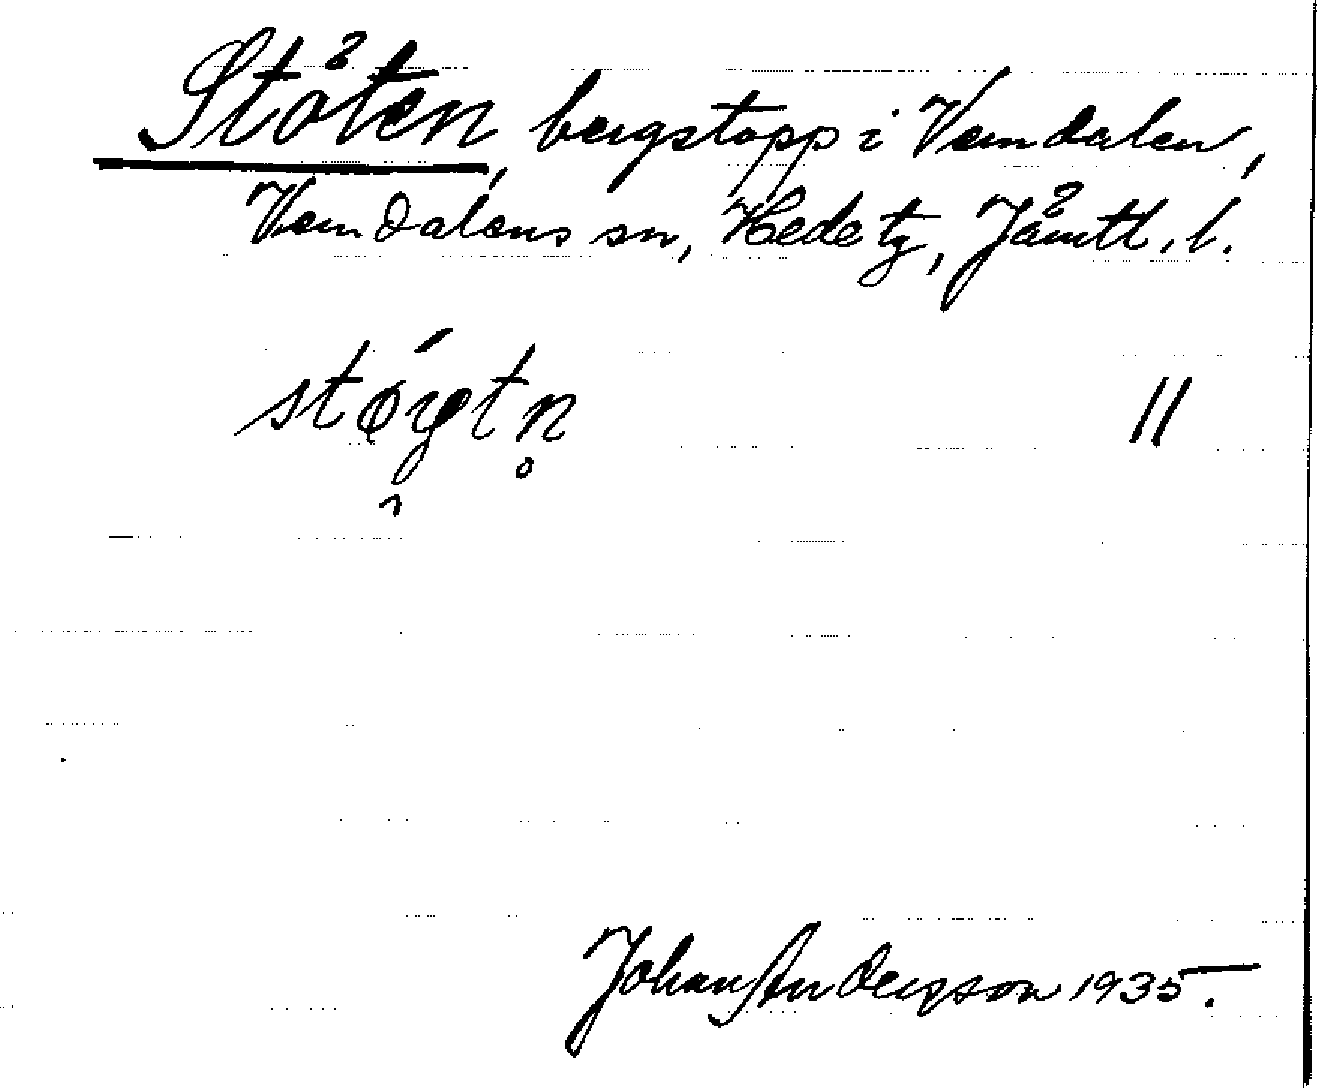 Ståten, bergstopp i Vemdalen,
Vemdalens sn, Hede tg, Jämtl. l.
Johan Anderson 1935.